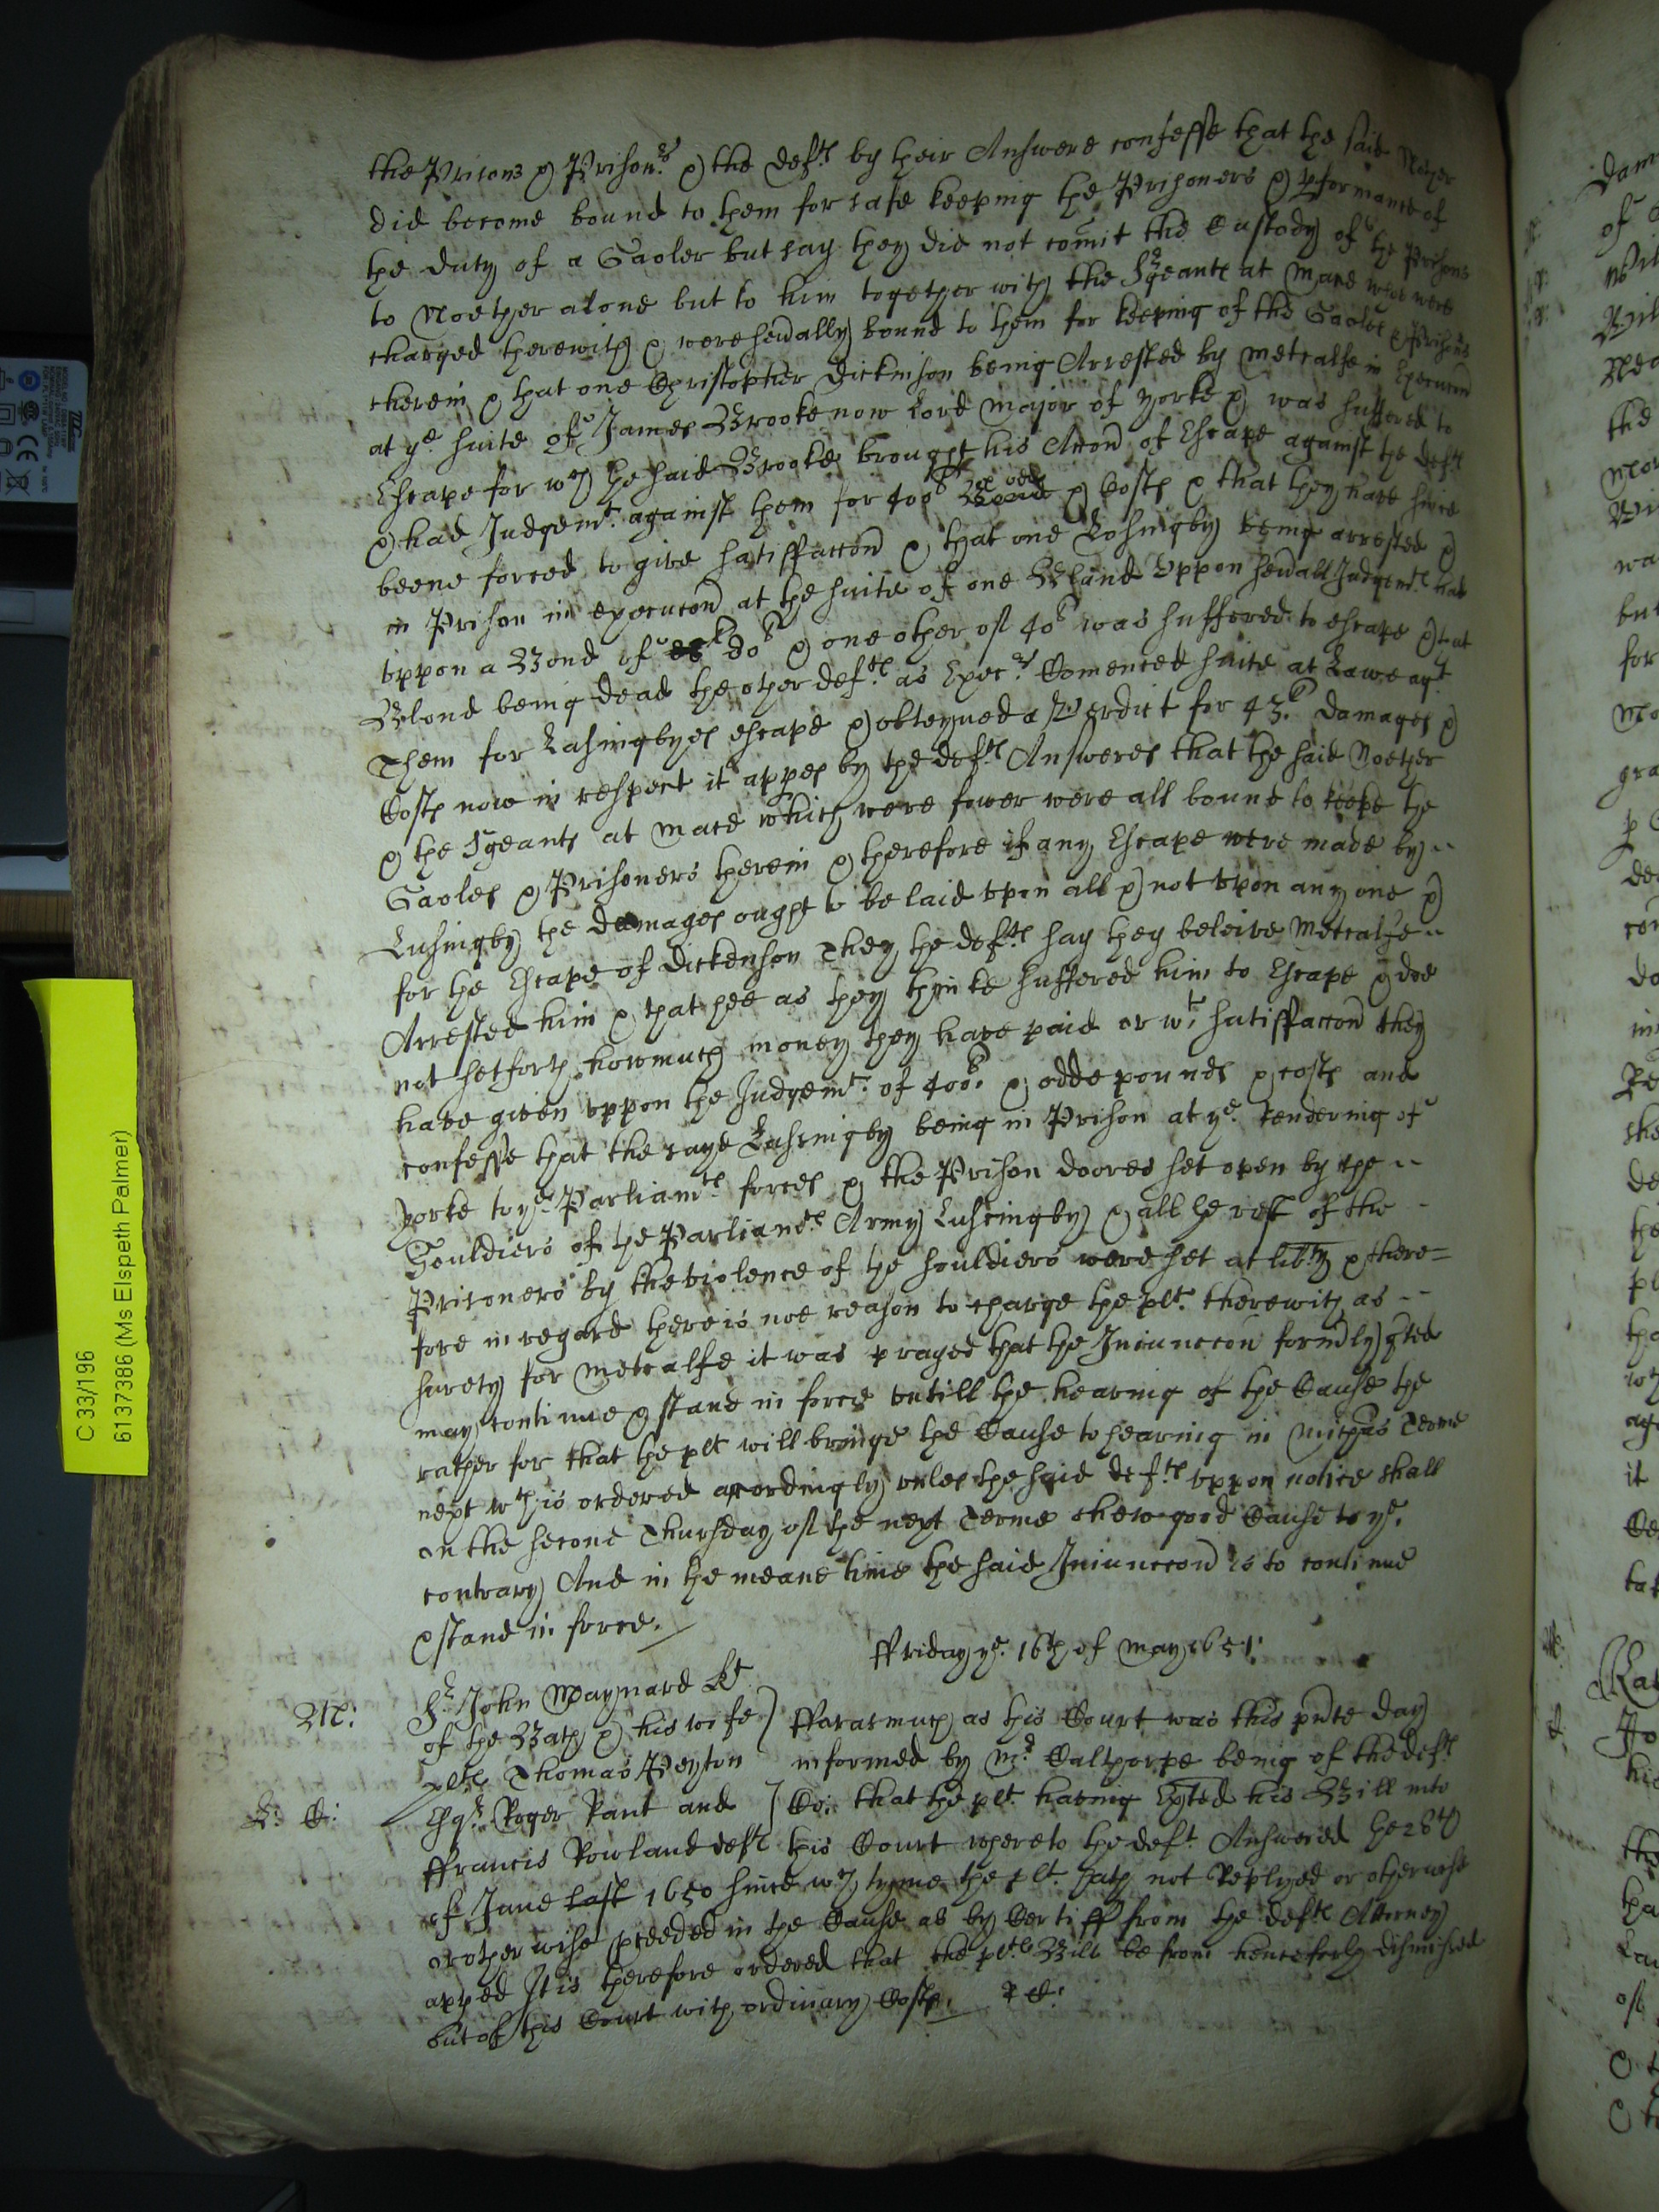 the Prisons & Prisonrs & the Deftes by their Answere confesse that the said Noether
did become bound to them for safe keeping the Prisoners & pformance of
the duty of a Gaoler but say they did not comit the Custody of the Prisons
to Noether alone but to him together with the Sgeants at Mace who were
charged therewith & were sevally bound to them for keeping of the Gaoles & Prisons
therein & that one Christopher Dickinson being Arrested by Metcalfe in Execucon
at ye suite of James Brooke now Lord Major of Yorke & was suffered to
Escape for wch the said Brooke brought his Accon of Escape against the Defts
& had Judgemt against them for 400l & Costs & that they have since
beene forced to give satisfaccon & that one Lossingby being arrested &
in Prison in execucon at the suite of one Bland Uppon sevall Judgemts had
uppon a Bond of 80l & one other of 40l was suffered to escape & that
Bland being dead the other deftes as Execrs Comenced suite at Lawe agt
Them for Lasingbyes escape & obteyned a Verdict for 43l Damages &
Costs now in respect it appes by the deftes Answeres that the said Noether
& the Sgeants at Mace which were fower were all bound to keepe the
Gaoles & Prisoners therein & therefore if any Escape were made by
Lusingby the damages ought to be laid upon all & not upon any one &
for the Escape of Dickenson They the deftes say they beleive Metcalfe
Arrested him & that hee as they thinke suffered him to Escape & doe
not setforth howmuch money they have paid or wt satisfaccon they
have given uppon the Judgemt of 400l & odde pounds & costs and
confesse that the saye Lassingby being in Prison at ye rendering of
Yorke to ye Parliamts forces & the Prison doores set open by the
Souldiers of the Parliamts Army Lussingby & all the rest of the
Prisoners by the violence of the souldiers were set at libty & there=
fore in regard there is noe reason to charge the plt therewith as
surety for Metcalfe it was prayed that the Iniunccon formly gted
may continue & stand in force untill the hearing of the Cause the
rather for that the plt will bringe the Cause to hearing in Michas Terme
next wch is ordered accordingly unles the said deftes uppon notice shall
on the second Thursday of the next Terme shew good Cause to ye
contrary And in the meane time the said Iniunccon is to continue
& stand in force.
ffriday ye 16th of May 1651:
Sr John Maynard Kt
of the Bath & his wife
pltes Thomas Peyton
Esqr Roger Pant and
ffrancis Rowland defts
fforasmuch as this Court was this pnte day
informed by Mr Calthorpe being of the defts
Co: that the plt having Exted his Bill into
this Court whereto the deft Answered the 28th
of June last 1650 since wch tyme the plt hath not Replyed or otherwise
or otherwise pceeded in the Cause as by Certiff from the defts Attorney
apped It is therefore ordered that the pltes Bill be from henceforth dismissed
out of this Court with ordinary Costs.
C 33/196
6137386 (Ms Elspeth Palmer)